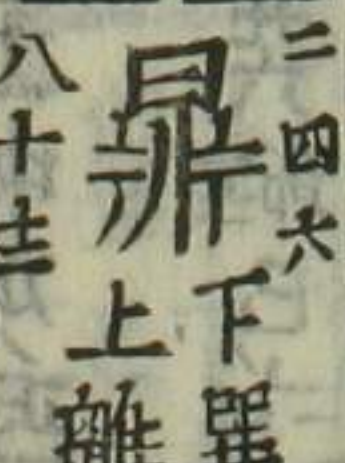 二四六
鼎
下巽
上離
八十十二